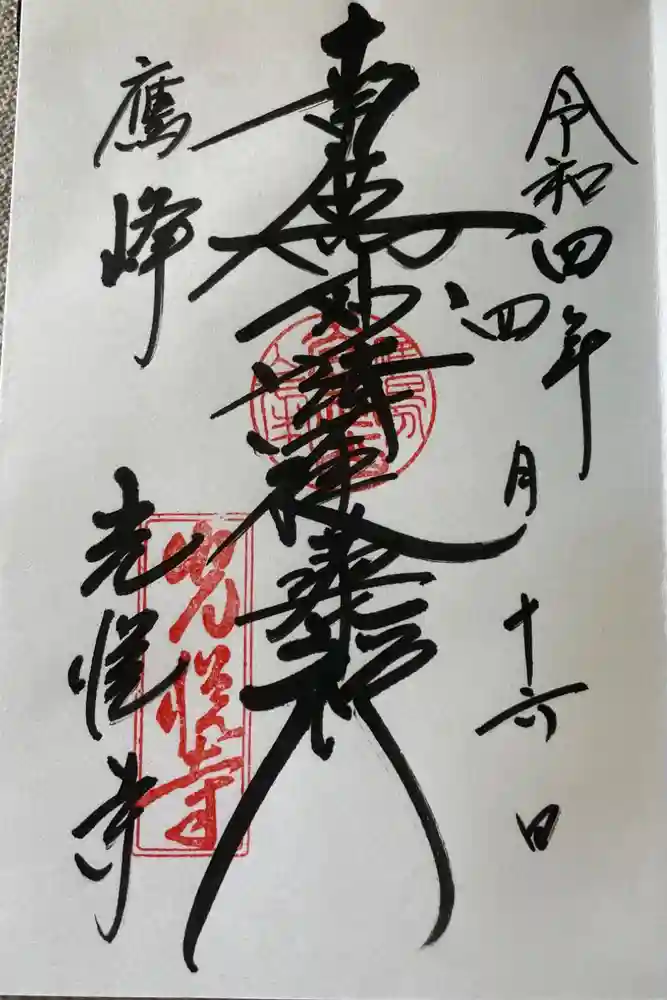 令和四年
四月十六日
南無妙法蓮華経
鷹峰
光悦寺
光悦寺